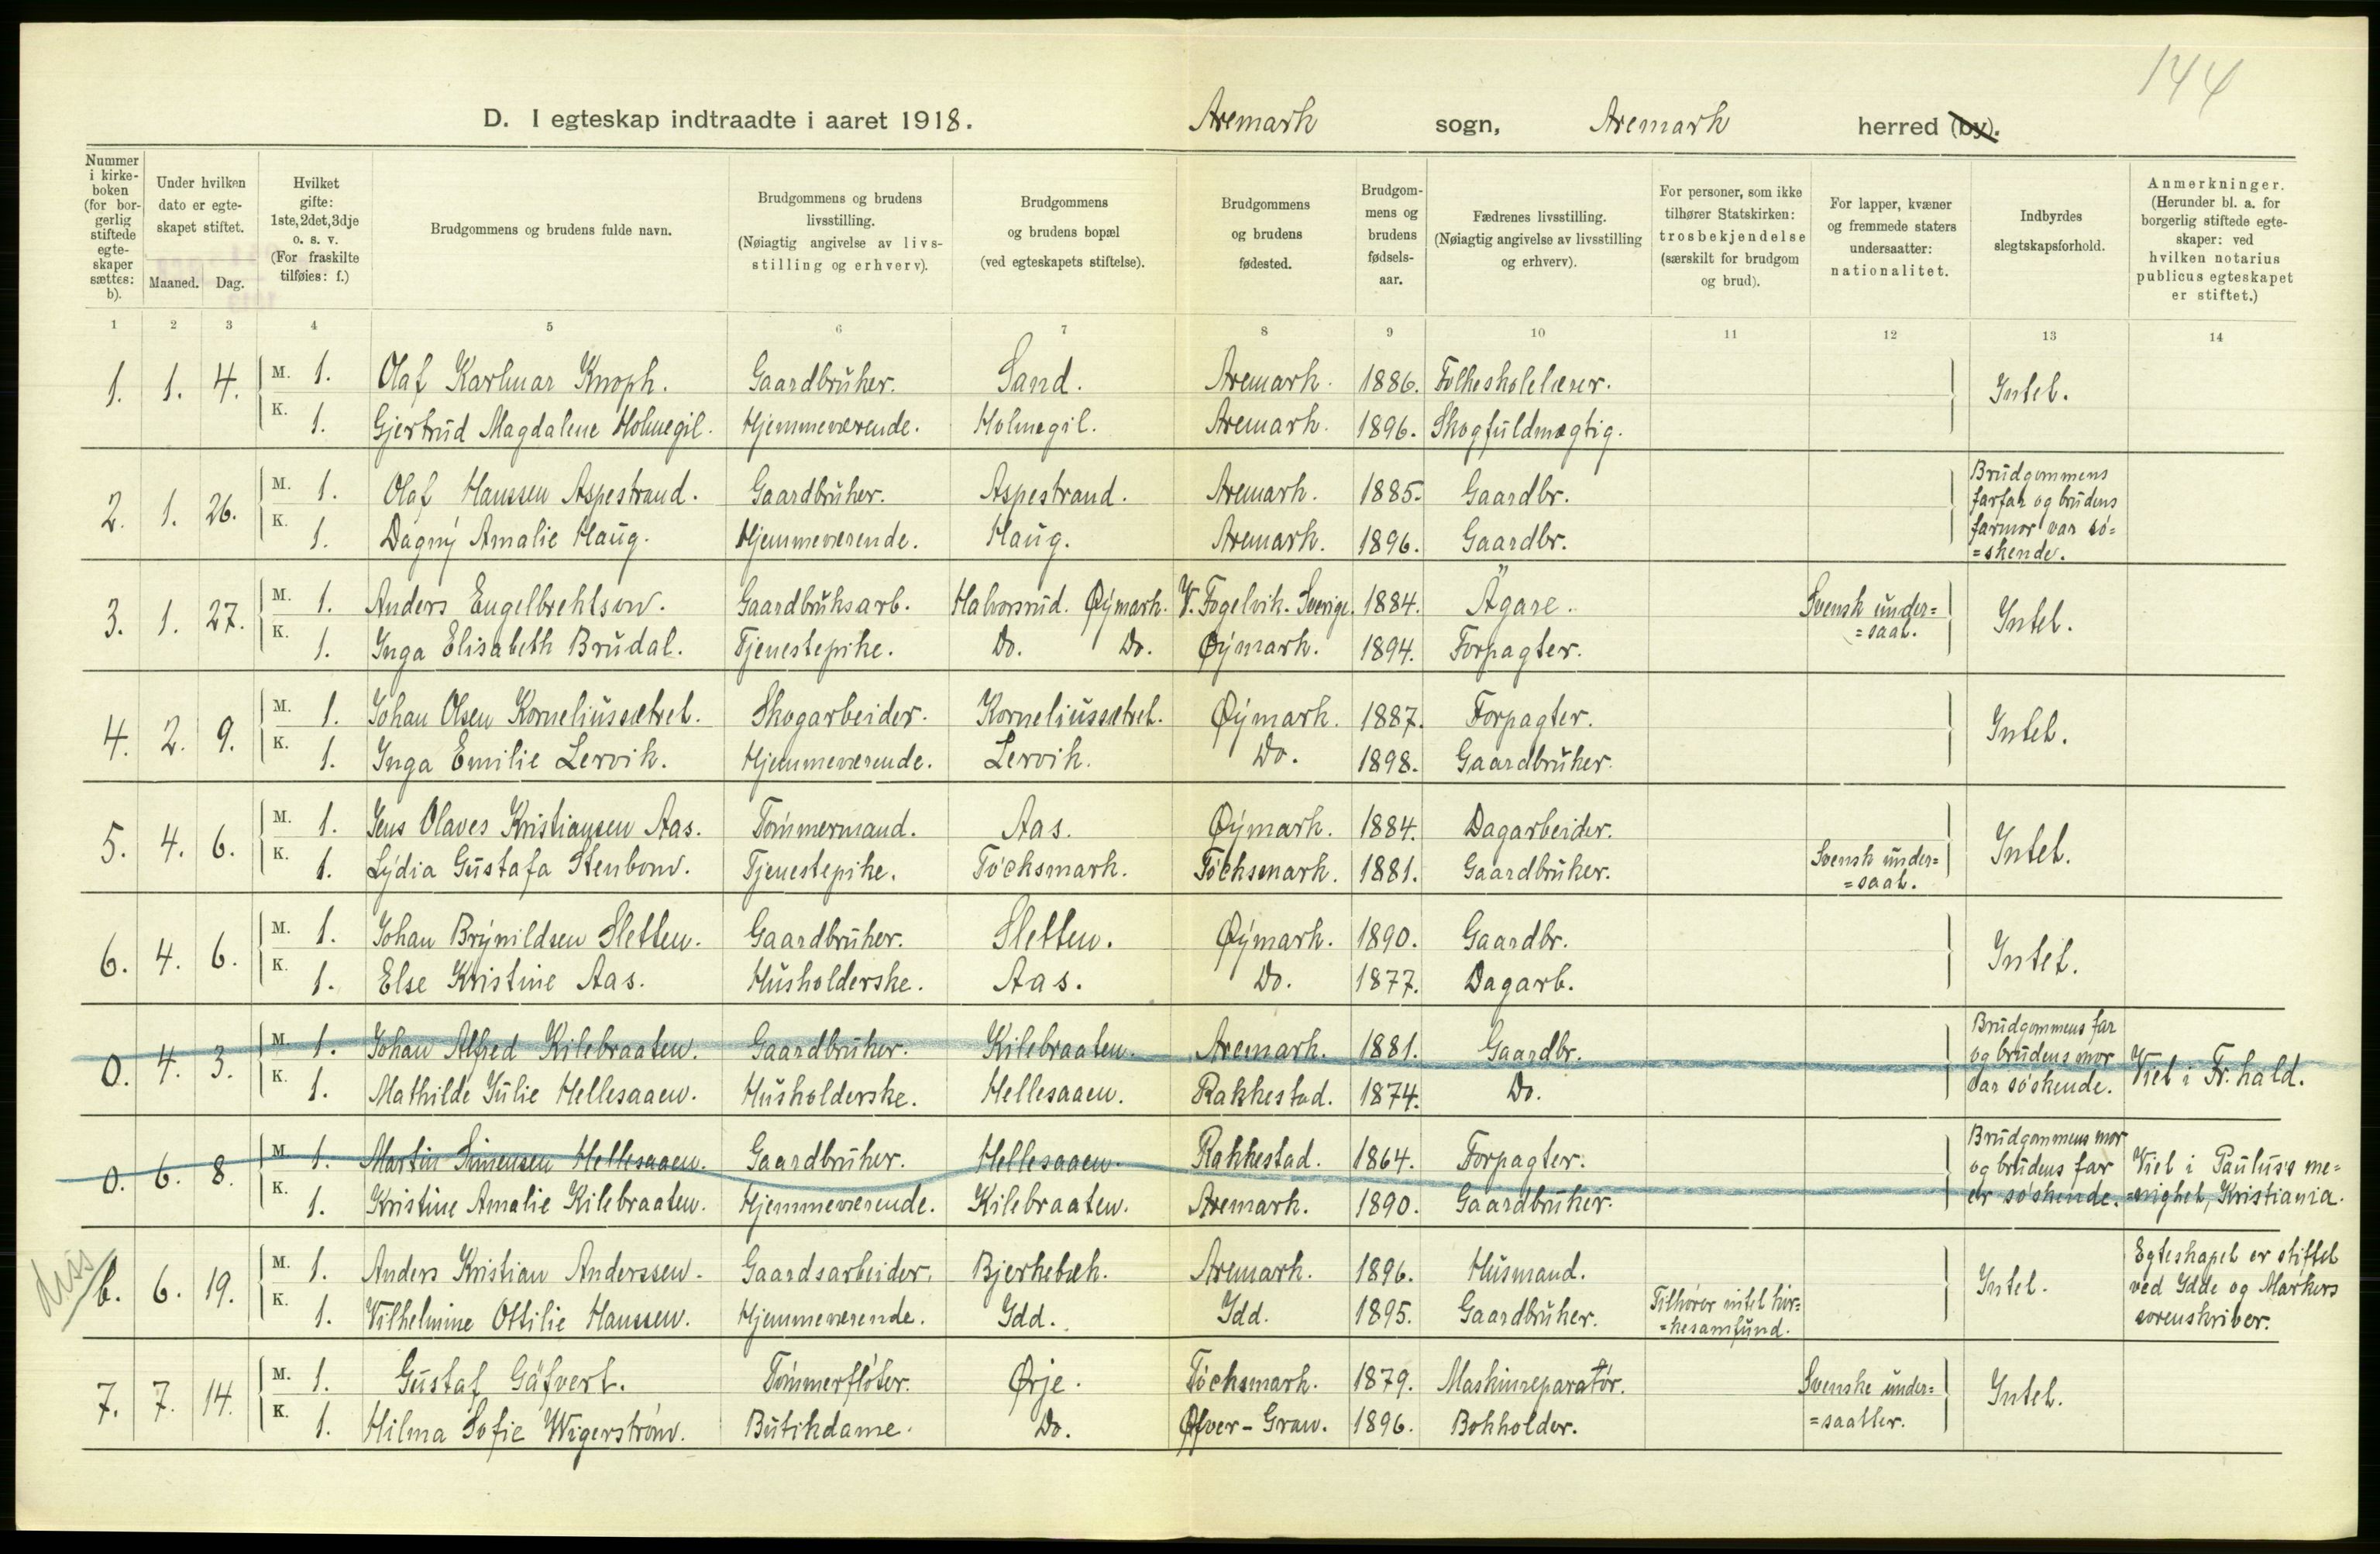 144
D. I egteskap indtraadte i aaret 1918. Aremark sogn, Aremark herred (by).
Nummer i kirke-boken (for bor-gerlig stiftede egte-skaper sættes: b).
Under hvilken dato er egte-skapet stiftet. Maaned. Dag.
Hvilket gifte: 1ste, 2det, 3dje o. s. v. (For fraskilte tilføies: f.)
Brudgommens og brudens fulde navn.
Brudgommens og brudens livsstilling. (Nøiagtig angivelse av livs-stilling og erhverv).
Brudgommens og brudens bopæl (ved egteskapets stiftelse).
Brudgommens og brudens fødested.
Brudgom-mens og brudens fødsels-aar.
Fædrenes livsstilling. (Nøiagtig angivelse av livsstilling og erhverv).
For personer, som ikke tilhører Statskirken: trosbekjendelse (særskilt for brudgom og brud).
For lapper, kvæner og fremmede staters undersaatter: nationalitet.
Indbyrdes slegtskapsforhold.
Anmerkninger. (Herunder bl. a. for borgerlig stiftede egte-skaper: ved hvilken notarius publicus egteskapet er stiftet.)
1 2 3 4 5 6 7 8 9 10 11 12 13 14
1. 1. 4. M. 1. Olaf Karluar Knoph. Gaardbruker. Sand. Aremark. 1886. Folkeskolelærer. Intet.
K. 1. Gjertrud Magdalene Holmegil. Hjemmeværende. Holmegil. Aremark. 1896. Skogfuldmægtig.
2. 1. 26. M. 1. Olaf Hanssen Aspestrand. Gaardbruker. Aspestrand. Aremark. 1885. Gaardbr. Brudgommens farfar og brudens farmor var sø-=skende.
K. 1. Dagny Amalie Haug. Hjemmeværende. Haug. Aremark. 1896. Gaardbr.
3. 1. 27. M. 1. Anders Engelbrektson. Gaardbruksarb. Halvorsrud. Øymark. V. Fogelvik. Sverige. 1884. Ägare. Svensk under==saat. Intet.
K. 1. Inga Elisabeth Brudal. Tjenestepike. Do. Do. Øymark. 1894. Forpagter.
4. 2. 9. M. 1. Johan Olsen Korneliussætret. Skogarbeider. Korneliussætret. Øymark. 1887. Forpagter. Intet.
K. 1. Inga Emilie Lervik. Hjemmeværende. Lervik. Do. 1898. Gaardbruker.
5. 4. 6. M. 1. Jens Olaves Kristiansen Aas. Tømmermand. Aas. Øymark. 1884. Dagarbeider. Intet.
K. 1. Lydia Gustafa Stenbom. Tjenestepike. Töcksmark. Töcksmark. 1881. Gaardbruker. Svensk under==saat.
6. 4. 6. M. 1. Johan Brynildsen Sletten. Gaardbruker. Sletten. Øymark. 1890. Gaardbr. Intet.
K. 1. Else Kristine Aas. Husholderske. Aas. Do. 1877. Dagarb.
0. 4. 3. M. 1. Johan Alfred Kilebraaten. Gaardbruker. Kilebraaten. Aremark. 1881. Gaardbr. Brudgommens far og brudens mor var søskende. Viet i Fr.hald.
K. 1. Mathilde Julie Hellesaaen. Husholderske. Hellesaaen. Rakkestad. 1874. Do.
0. 6. 8. M. 1. Martin Simensen Hellesaaen. Gaardbruker. Hellesaaen. Rakkestad. 1864. Forpagter. Brudgommens mor og brudens far er søskende. Viet i Paulus's me==nighet, Kristiania.
K. 1. Kristine Amalie Kilebraaten. Hjemmeværende. Kilebraaten. Aremark. 1890. Gaardbruker.
diss b. 6. 19. M. 1. Anders Kristian Anderssen. Gaardsarbeider. Bjerkebæk. Aremark. 1896. Husmand. Intet. Egteskapet er stiftet ved Idde og Markers sorenskriver.
K. 1. Vilhelmine Ottilie Hanssen. Hjemmeværende. Idd. Idd. 1895. Gaardbruker. Tilhører intet kir==kesamfund.
7. 7. 14. M. 1. Gustaf Gäfvert. Tømmerfløter. Ørje. Töcksmark. 1879. Maskinreparatør. Svenske under==saatter. Intet.
K. 1. Hilma Sofie Wigerstrøm. Butikdame. Do. Øfver-Gran. 1896. Bokholder.